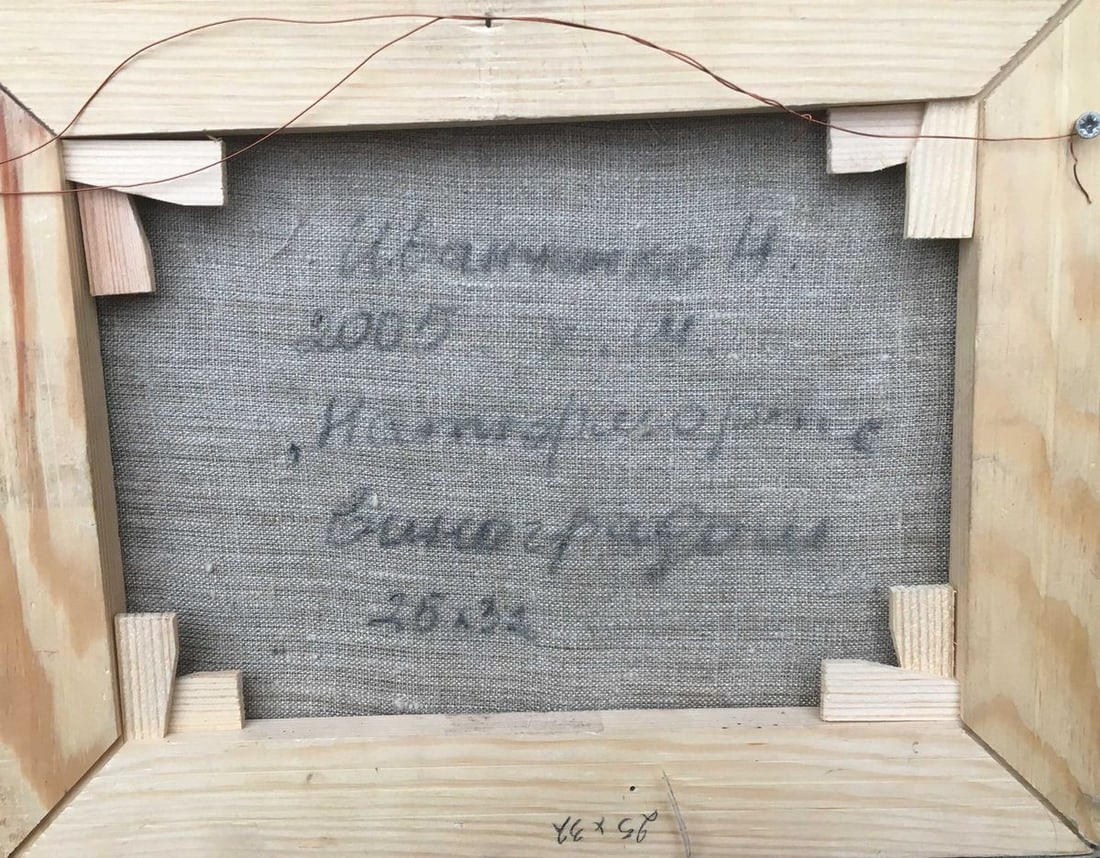 2005 х. м.
„Натюрморт с
виноградом
25х32
25 х 32